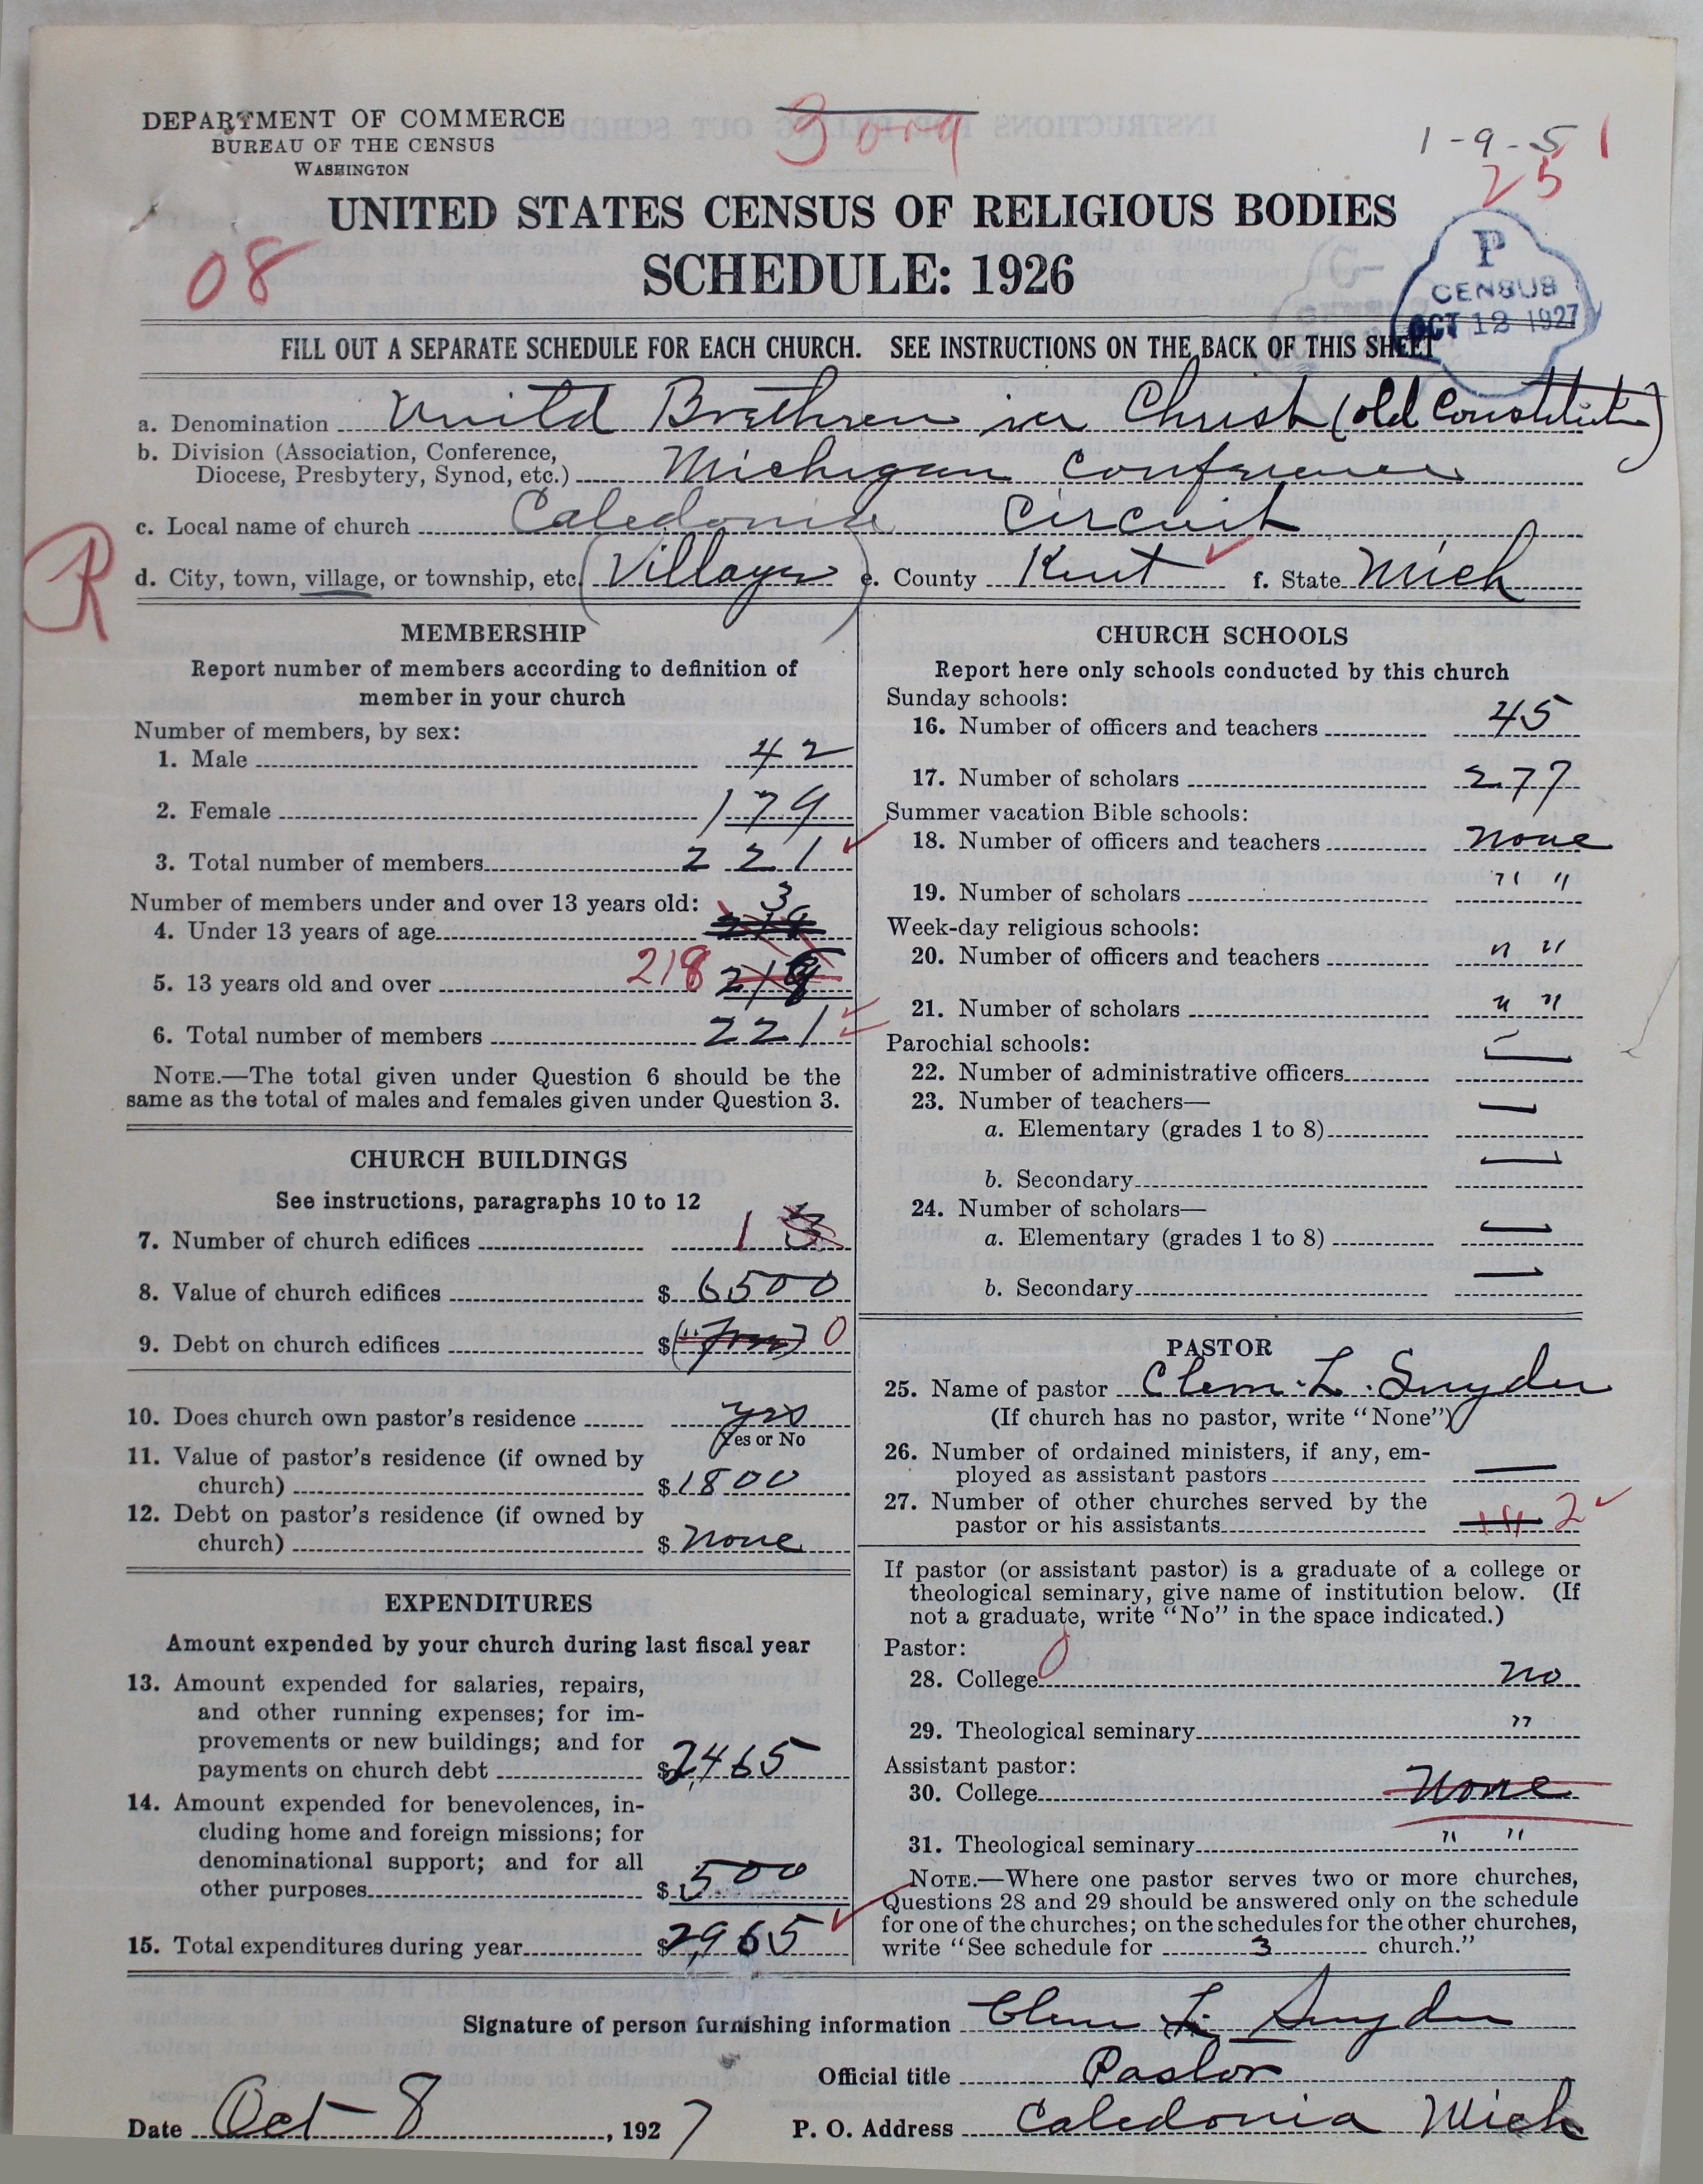 DEPARTMENT OF COMMERCE
BUREAU OF THE CENSUS
WASHINGTON
3 or 9
1-9-5 1
25
UNITED STATES CENSUS OF RELIGIOUS BODIES
SCHEDULE: 1926
08
P
CENSUS
OCT 12 1927
FILL OUT A SEPARATE SCHEDULE FOR EACH CHURCH. SEE INSTRUCTIONS ON THE BACK OF THIS SHEET
a. Denomination United Brethren in Christ (old Constitution)
b. Division (Association, Conference,
Diocese, Presbytery, Synod, etc.) Michigan Conference
c. Local name of church Caledonia Circuit
R
d. City, town, village, or township, etc. (Village) e. County Kent f. State Mich
MEMBERSHIP
Report number of members according to definition of
member in your church
Number of members, by sex:
1. Male 42
2. Female 179
3. Total number of members 221
Number of members under and over 13 years old:
4. Under 13 years of age 3
5. 13 years old and over 218 218
6. Total number of members 221
NOTE.—The total given under Question 6 should be the
same as the total of males and females given under Question 3.
CHURCH BUILDINGS
See instructions, paragraphs 10 to 12
7. Number of church edifices 1 3
8. Value of church edifices $ 6500
9. Debt on church edifices $ 0
10. Does church own pastor's residence yes
Yes or No
11. Value of pastor's residence (if owned by
church) $ 1800
12. Debt on pastor's residence (if owned by
church) $ none
EXPENDITURES
Amount expended by your church during last fiscal year
13. Amount expended for salaries, repairs,
and other running expenses; for im-
provements or new buildings; and for
payments on church debt $ 2,465
14. Amount expended for benevolences, in-
cluding home and foreign missions; for
denominational support; and for all
other purposes $ 500
15. Total expenditures during year $ 2,965
CHURCH SCHOOLS
Report here only schools conducted by this church
Sunday schools:
16. Number of officers and teachers 45
17. Number of scholars 277
Summer vacation Bible schools:
18. Number of officers and teachers none
19. Number of scholars " "
Week-day religious schools:
20. Number of officers and teachers " "
21. Number of scholars " "
Parochial schools:
22. Number of administrative officers —
23. Number of teachers—
a. Elementary (grades 1 to 8) —
b. Secondary —
24. Number of scholars—
a. Elementary (grades 1 to 8) —
b. Secondary —
PASTOR
25. Name of pastor Clem. L. Snyder
(If church has no pastor, write "None")
26. Number of ordained ministers, if any, em-
ployed as assistant pastors —
27. Number of other churches served by the
pastor or his assistants 2
If pastor (or assistant pastor) is a graduate of a college or
theological seminary, give name of institution below. (If
not a graduate, write "No" in the space indicated.)
Pastor:
28. College 0 no
29. Theological seminary "
Assistant pastor:
30. College None
31. Theological seminary " "
NOTE.—Where one pastor serves two or more churches,
Questions 28 and 29 should be answered only on the schedule
for one of the churches; on the schedules for the other churches,
write "See schedule for 3 church."
Signature of person furnishing information Clem L. Snyder
Official title Pastor
Date Oct - 8, 1927 P. O. Address Caledonia Mich